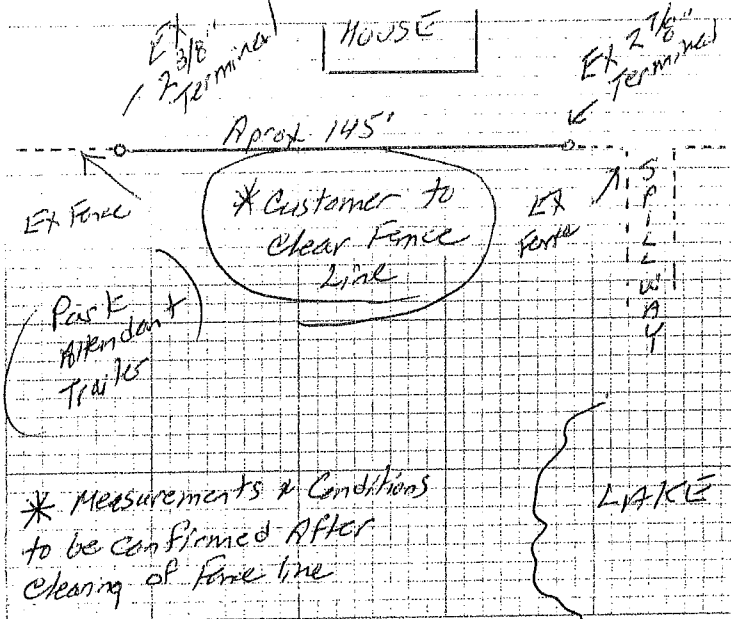 EX
2 3/8"
Terminal
HOUSE
EX 2 7/8"
Terminal
Aprox 145'
EX Fence
* Customer to
Clear Fence
Line
EX
Fence
SPILLWAY
Park
Attendant
Trailer
LAKE
* Measurements & Conditions
to be Confirmed After
Clearing of Fence line